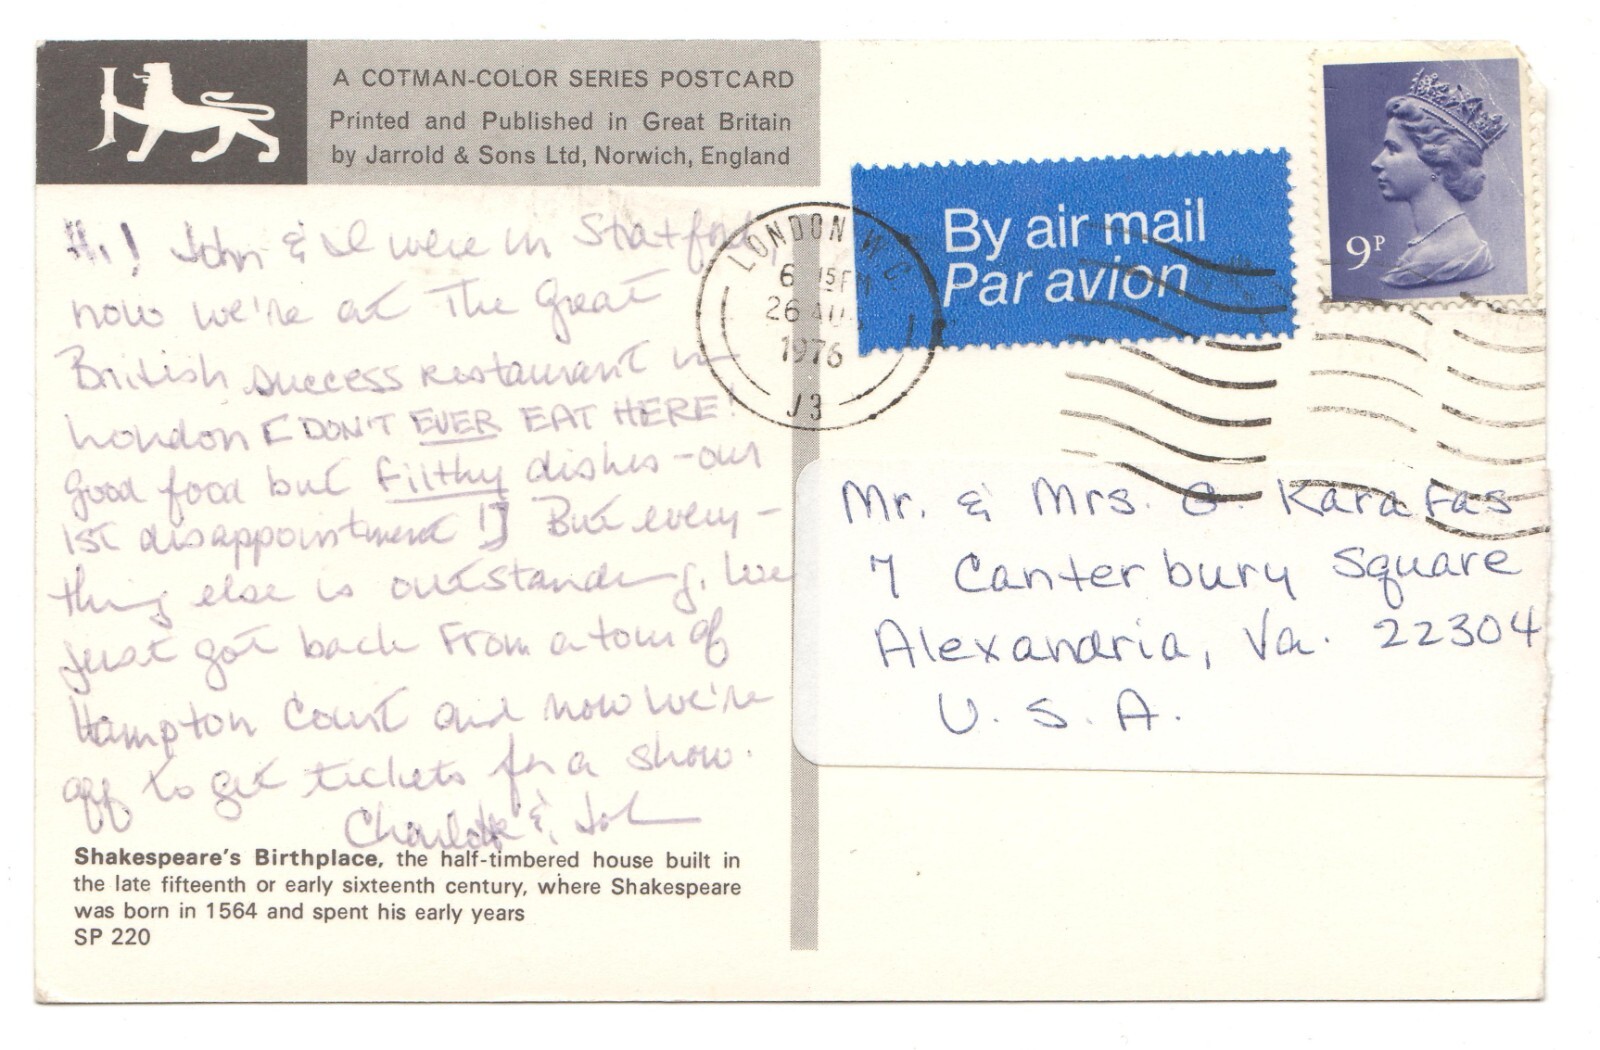 A COTMAN-COLOR SERIES POSTCARD
Printed and Published in Great Britain
by Jarrold & Sons Ltd, Norwich, England
Hi! John & I were in Statford,
now we're at The Great
British success restaurant in
London [DON'T EVER EAT HERE!
good food but filthy dishes - our
1st disappointment!] But every-
thing else is outstanding. We
just got back from a tour of
Hampton Court and now we're
off to get tickets for a show.
Charlotte & John
Shakespeare's Birthplace, the half-timbered house built in
the late fifteenth or early sixteenth century, where Shakespeare
was born in 1564 and spent his early years
SP 220
LONDON W.C
6 15PM
26 AUG
1976
J3
By air mail
Par avion
9P
Mr. & Mrs. G. Karafas
7 Canterbury Square
Alexandria, Va. 22304
U.S.A.